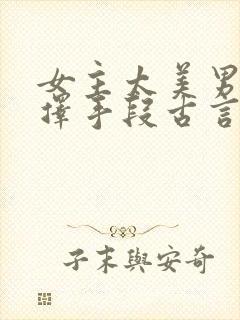 女主太美男
择手段古言
子末與安奇